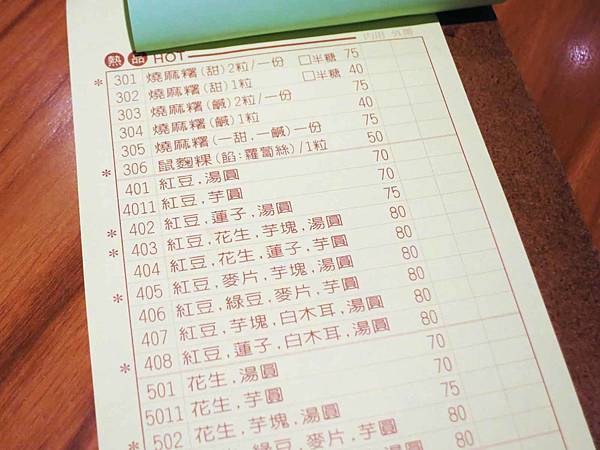 熱品 HOT 內用 外帶
* 301 燒麻糬(甜)2粒/一份 □半糖 75
302 燒麻糬(甜)1粒 □半糖 40
303 燒麻糬(鹹)2粒/一份 75
304 燒麻糬(鹹)1粒 40
305 燒麻糬(一甜,一鹹)一份 75
* 306 鼠麴粿(餡:蘿蔔絲)/1粒 50
401 紅豆,湯圓 70
4011 紅豆,芋圓 70
* 402 紅豆,蓮子,湯圓 75
* 403 紅豆,花生,芋塊,湯圓 80
404 紅豆,花生,蓮子,芋圓 80
* 405 紅豆,麥片,芋塊,湯圓 80
406 紅豆,綠豆,麥片,芋圓 80
407 紅豆,芋塊,白木耳,湯圓 80
* 408 紅豆,蓮子,白木耳,湯圓 80
501 花生,湯圓 70
5011 花生,芋圓 70
* 502 花生,芋塊,湯圓 75
綠豆,麥片,芋圓 80
80